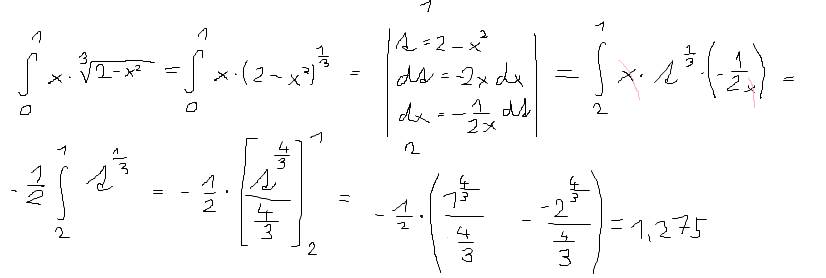 ∫₀¹ x · ∛(2-x²) = ∫₀¹ x · (2-x²)^(1/3) = | s = 2-x² ; ds = -2x dx ; dx = -1/(2x) ds |₂¹ = ∫₂¹ x · s^(1/3) · (-1/(2x)) =
-1/2 ∫₂¹ s^(1/3) = -1/2 · [s^(4/3)/(4/3)]₂¹ = -1/2 · (1^(4/3)/(4/3) - -2^(4/3)/(4/3)) = 1,275